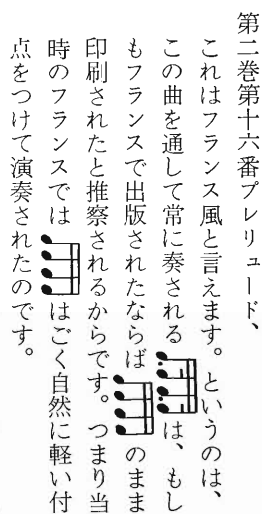 第二巻第十六番プレリュード、
これはフランス風と言えます。というのは、
この曲を通して常に奏される は、もし
もフランスで出版されたならば のまま
印刷されたと推察されるからです。つまり当
時のフランスでは はごく自然に軽い付
点をつけて演奏されたのです。